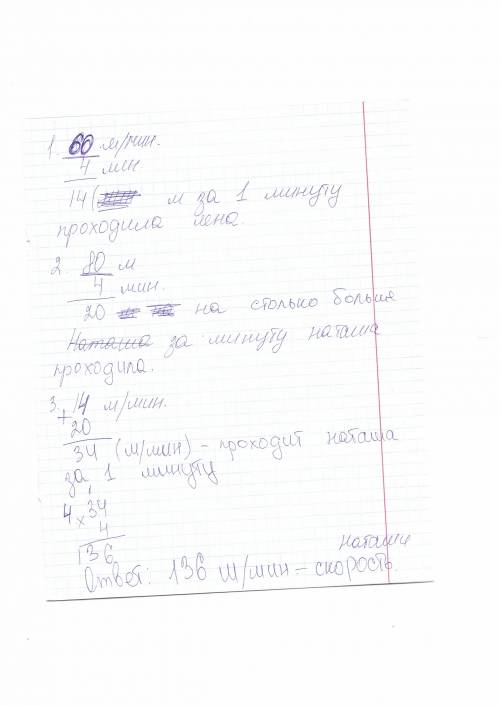 1. 60 м/мин.
4 мин
14( м за 1 минуту
проходила лена.
2. 80 м
4 мин.
20 на столько больше
Наташа за минуту наташа
проходила.
3. 14 м/мин.
+ 20
34 (м/мин) - проходит наташа
за 1 минуту
4 x 34
4
136
наташи
Ответ: 136 м/мин - скорость.